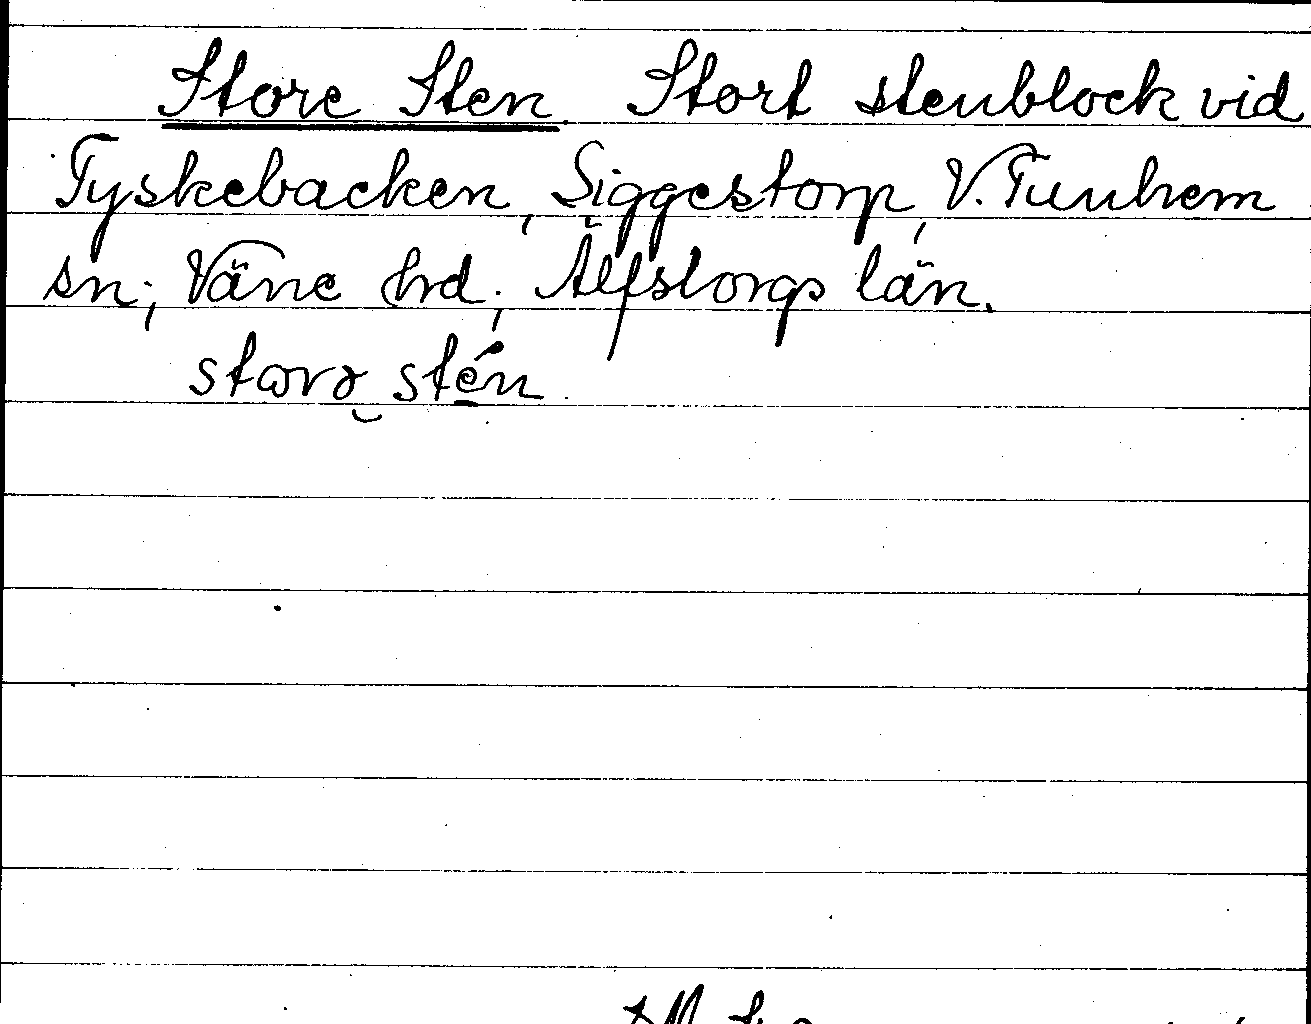 Store Sten. Stort stenblock vid
Tyskebacken, Siggestorp, V. Tunhem
sn; Väne hd; Älfsborgs län.
storə stén